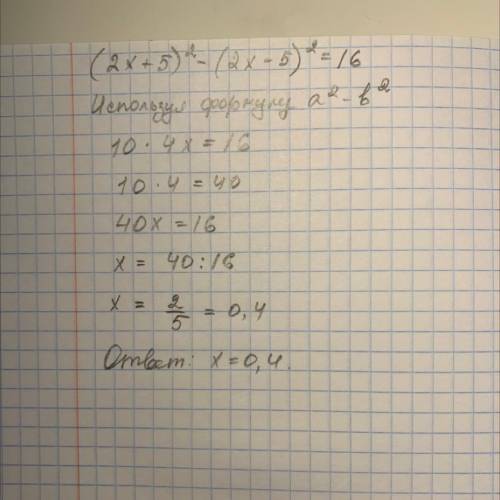 (2x+5)² - (2x-5)² = 16
Используя формулу a² - b²
10 · 4x = 16
10 · 4 = 40
40x = 16
x = 40 : 16
x = 2/5 = 0,4
Ответ: x = 0,4.